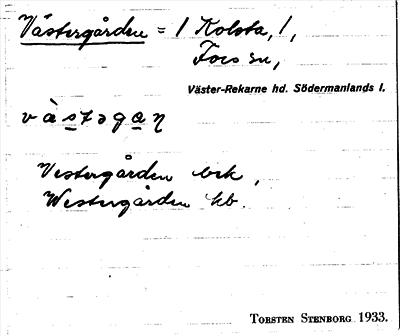 Västergården = 1 Kolsta, 1,
Fors sn,
Väster-Rekarne hd. Södermanlands l.
vàstəgaɳ
Vestergården bsk,
Westergården kb.
TORSTEN STENBORG 1933.